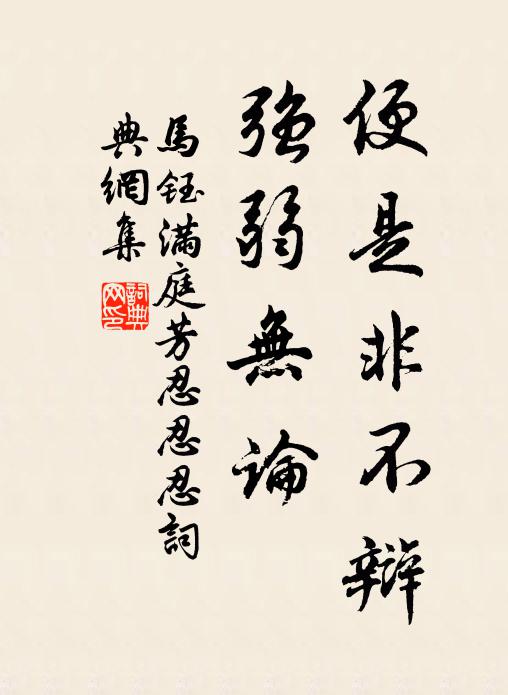 便是非不辯
強弱無論
馬鈺滿庭芳忍忍忍詞
典網集
詞典網印